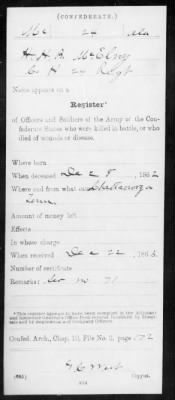 (CONFEDERATE.)
Mc 24 Ala
H. H. A. McElroy
Co. H 24 Regt
Name appears on a
Register*
of Officers and Soldiers of the Army of the Con-
federate States who were killed in battle, or who
died of wounds or disease.
Where born
When deceased Dec 8, 1862
Where and from what cause Chattanooga
Tenn
Amount of money left
Effects
In whose charge
When received Dec 22, 1863.
Number of certificate
Remarks: No 71
*This register appears to have been compiled in the Adjutant
and Inspector General's Office from reports furnished by Hospi-
tals and by Regimental and Company Officers.
Confed. Arch., Chap. 10, File No. 2, page 172
Copyist.